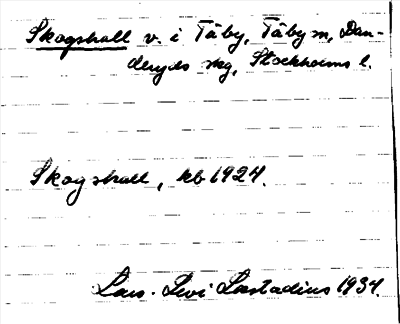 Skogshall v. i Täby, Täby sn, Dan-
deryds skg, Stockholms l.
Skogshall, kb 1924.
Lars-Levi Læstadius 1934.